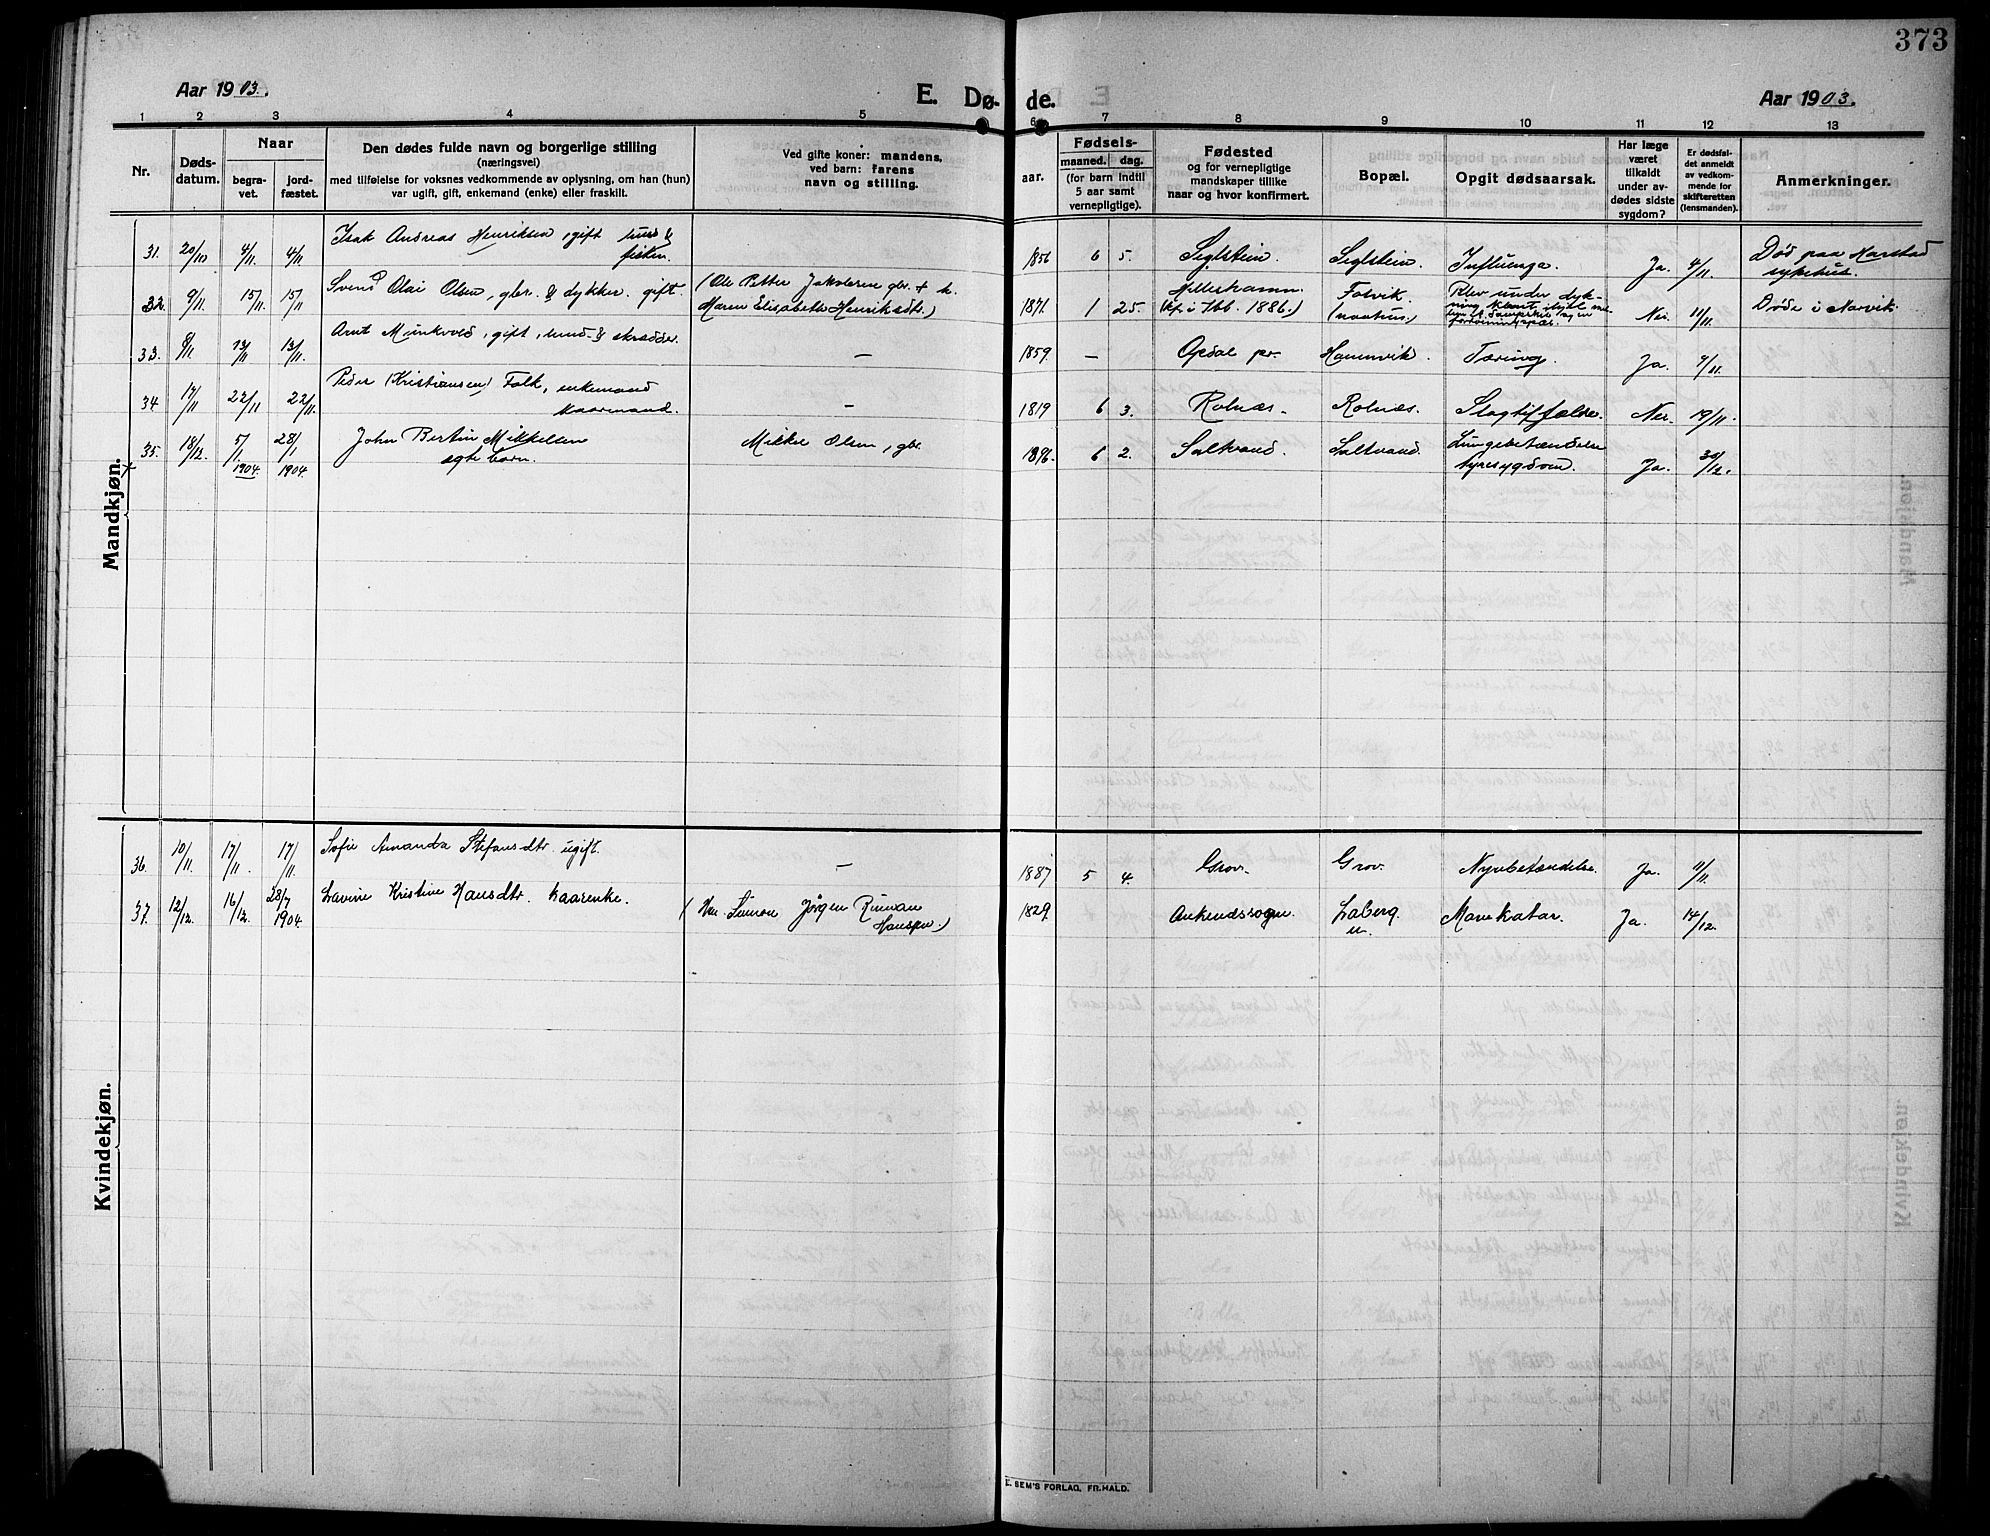 373
Aar 1903.
E. Dø-de.
Aar 1903.
1 2 3 4 5 6 7 8 9 10 11 12 13
Nr.
Døds-
datum.
Naar
begra-
vet.
jord-
fæstet.
Den dødes fulde navn og borgerlige stilling
(næringsvei)
med tilføielse for voksnes vedkommende av oplysning, om han (hun)
var ugift, gift, enkemand (enke) eller fraskilt.
Ved gifte koner: mandens,
ved barn: farens
navn og stilling.
Fødsels-
aar.
maaned. dag.
(for barn indtil
5 aar samt
vernepligtige).
Fødested
og for vernepligtige
mandskaper tillike
naar og hvor konfirmert.
Bopæl.
Opgit dødsaarsak.
Har læge
været
tilkaldt
under av-
dødes sidste
sygdom?
Er dødsfal-
det anmeldt
av vedkom-
mende for
skifteretten
(lensmanden).
Anmerkninger.
Mandkjøn.
31. 20/10 4/11. 4/11 Isak Andreas Henriksen, gift huus &
fisker. 1856 6 5. Seglstein. Seglstein. Influenza. Ja. 4/11. Død paa Harstad
sykehus.
32. 9/11. 15/11. 15/11 Svens Olai Olsen, gbr. & dykker. gift. (Ole Petter Jakobsen gbr. + h.
Maren Elisabeth Henriksdtr.) 1871. 1 25. Hilleshamn.
(Kf. i Ibb. 1886.) Fotvik.
Blev under dyk-
ning Nei. 11/11. Døde i Narvik.
33. 8/11 13/11 13/11. Arnt Munkvold, gift, huusd. & skrædder. — 1859. — Opdal pr. Hamnvik. Tæring. Ja. 9/11.
34. 17/11 22/11 22/11. Peder (Kristiansen) Falk, enkemand
kaarmand. — 1819 6 3. Rolnæs. Rolnæs. Slagtilfælde. Nei. 19/11.
35. 18/12. 5/1. 1904. 28/1 1904. John Bertin Mikkelsen
ægte barn. Mikkel Olsen, gbr. 1896. 6 2. Saltvand. Saltvand. Lungebetændelse
Ja. 30/12.
Kvindekjøn.
36. 10/11. 17/11. 17/11. Sofie Amanda Stefansdtr. ugift. — 1887 5 4. Grov. Grov. Nyrebetændelse. Ja. 11/11.
37. 12/12. 16/12. 28/7 1904. Lavine Kristine Hansdtr. kaarenke. (Hm. Simon Jørgen Rinnan
Hanssen.) 1829. Ankenessogn. Laberg
n. Mavekatar. Ja. 14/12.
E. SEM'S FORLAG, FR.HALD.